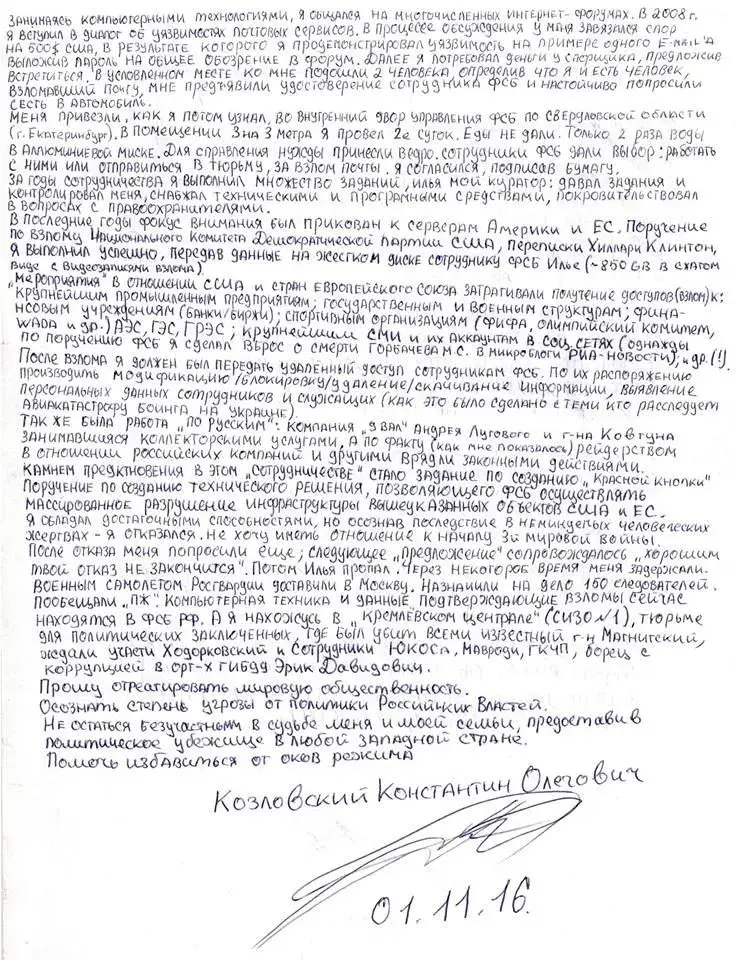 Занимаясь компьютерными технологиями, я общался на многочисленных интернет-форумах. В 2008 г.
я вступил в диалог об уязвимостях почтовых сервисов. В процессе обсуждения у меня завязался спор
на 500$ сша, в результате которого я продемонстрировал уязвимость на примере одного e-mail'а
выложив пароль на общее обозрение в форум. Далее я потребовал деньги у спорщика, предложив
встретиться. В условленном месте ко мне подошли 2 человека, определив что я и есть человек,
взломавший почту, мне предъявили удостоверение сотрудника ФСБ и настойчиво попросили
сесть в автомобиль.
Меня привезли, как я потом узнал, во внутренний двор управления ФСБ по Свердловской области
(г. Екатеринбург). В помещении 3 на 3 метра я провел 2е суток. Еды не дали. Только 2 раза воды
в аллюминиевой миске. Для справления нужды принесли ведро. Сотрудники ФСБ дали выбор: работать
с ними или отправиться в тюрьму, за взлом почты. Я согласился, подписав бумагу.
За годы сотрудничества я выполнил множество заданий, Илья мой куратор: давал задания и
контролировал меня, снабжал техническими и програмными средствами, покровительствовал
в вопросах с правоохранителями.
В последние годы фокус внимания был прикован к серверам Америки и ЕС. Поручение
по взлому Национального Комитета Демократической партии США, переписки Хиллари Клинтон,
я выполнил успешно, передав данные на жестком диске сотруднику ФСБ Илье (~850 GB в сжатом
виде с видеозаписями взлома)
„Мероприятия" в отношении США и стран Европейского Союза затрагивали получение доступов (взлом) к:
крупнейшим промышленным предприятиям; государственным и военным структурам; фина-
нсовым учреждениям (банки/биржи); спортивным организациям (ФИФА, Олимпийский комитет,
WADA и др.) АЭС, ГЭС, ГРЭС; крупнейшим СМИ и их аккаунтам в соц. сетях (однажды
по поручению ФСБ я сделал вброс о смерти Горбачева М.С. в микроблоги РИА-Новости); и др. (!).
После взлома я должен был передать удаленный доступ сотрудникам ФСБ. По их распоряжению
производить модификацию/блокировку/удаление/скачивание информации, выявление
персональных данных сотрудников и служащих (как это было сделано с теми кто расследует
авиакатастрофу Боинга на Украине).
Так же была работа „по русским": компания „9 вал" Андрея Лугового и г-на Ковтуна
занимавшиеся коллекторскими услугами, а по факту (как мне показалось) рейдерством
в отношении российских компаний и другими врядли законными действиями.
Камнем предктновения в этом „сотрудничестве" стало задание по созданию „Красной кнопки"
Поручение по созданию технического решения, позволяющего ФСБ осуществлять
массированное разрушение инфраструктуры вышеуказанных объектов США и ЕС.
Я обладал достаточными способностями, но осознав последствие в неминуемых человеческих
жертвах - я отказался. Не хочу иметь отношение к началу 3й мировой войны.
После отказа меня попросили еще; следующее „предложение" сопровождалось „хорошим
твой отказ не закончится". Потом Илья пропал. Через некоторое время меня задержали.
Военным самолетом Росгвардии доставили в Москву. Назначили на дело 150 следователей.
Пообещали „ПЖ". Компьютерная техника и данные подтверждающие взломы сейчас
находятся в ФСБ РФ. А я нахожусь в „Кремлёвском централе" (СИЗО №1), тюрьме
для политических заключенных, где был убит всеми известный г-н Магнитский,
ждали участи Ходорковский и сотрудники ЮКОСа, Мавроди, ГКЧП, борец с
коррупцией в орг-х ГИБДД Эрик Давидович.
Прошу отреагировать мировую общественность.
Осознать степень угрозы от политики Российских Властей.
Не остаться безучастными в судьбе меня и моей семьи, предоставив
политическое убежище в любой западной стране.
Помочь избавиться от оков режима
Козловский Константин Олегович
01.11.16.